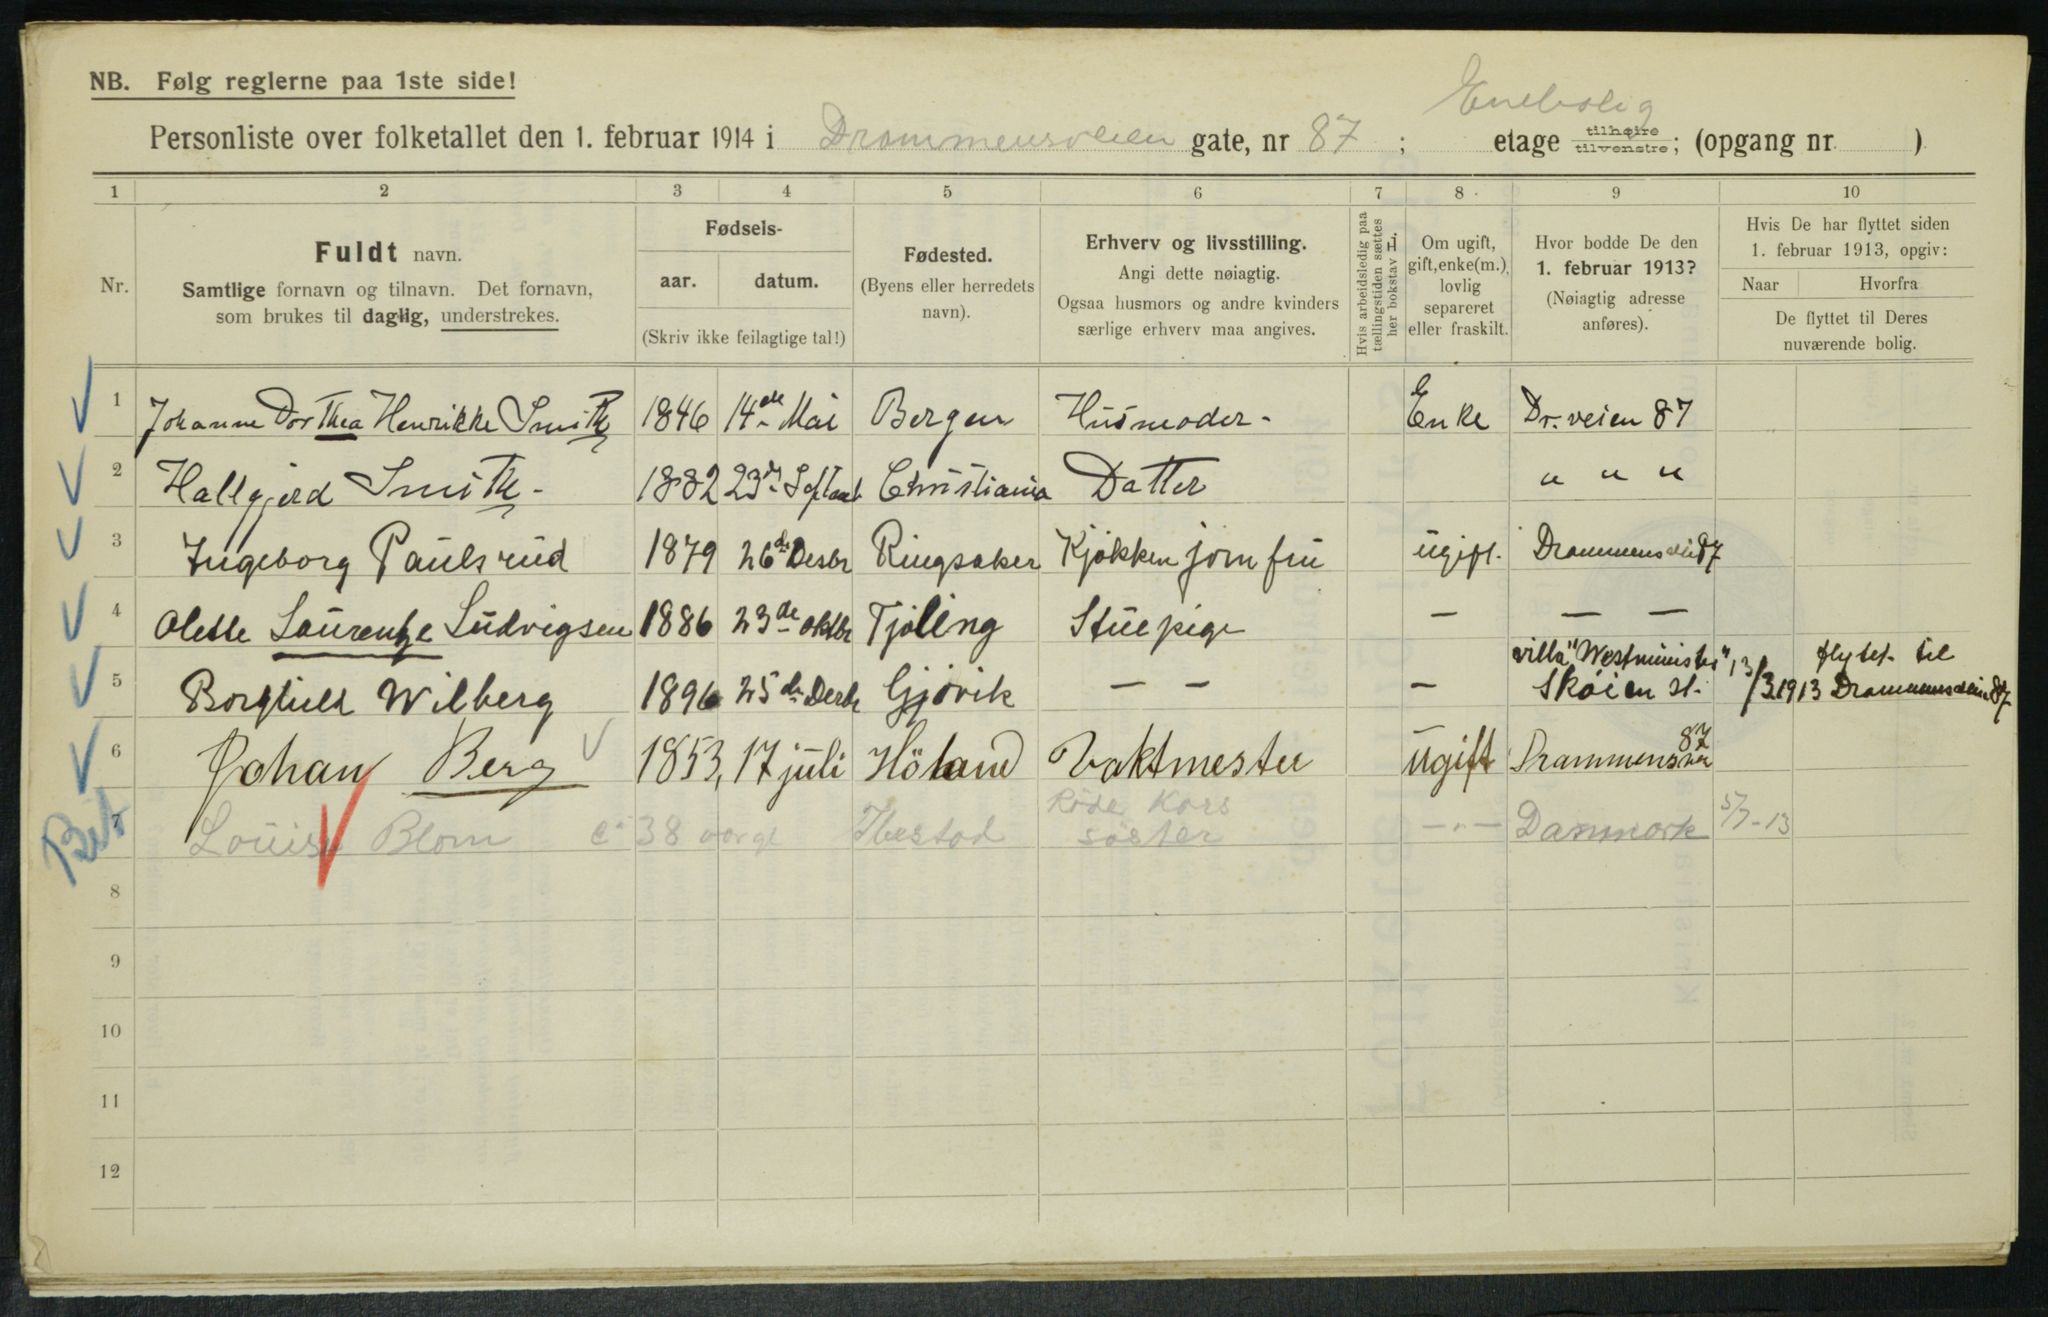 NB. Følg reglerne paa 1ste side!
Enebolig
Personliste over folketallet den 1. februar 1914 i Drammensveien gate, nr 87 ; etage tilhøire tilvenstre; (opgang nr. )
1 2 3 4 5 6 7 8 9 10
Nr.
Fuldt navn.
Samtlige fornavn og tilnavn. Det fornavn,
som brukes til daglig, understrekes.
Fødsels-
aar. datum.
(Skriv ikke feilagtige tal!)
Fødested.
(Byens eller herredets
navn).
Erhverv og livsstilling.
Angi dette nøiagtig.
Ogsaa husmors og andre kvinders
særlige erhverv maa angives.
Hvis arbeidsledig paa
tællingstiden sættes
her bokstav L.
Om ugift,
gift, enke(m.),
lovlig
separeret
eller fraskilt.
Hvor bodde De den
1. februar 1913?
(Nøiagtig adresse
anføres).
Hvis De har flyttet siden
1. februar 1913, opgiv:
Naar Hvorfra
De flyttet til Deres
nuværende bolig.
1 Johanne Dorthea Henrikke Smith 1846 14de Mai Bergen Husmoder - Enke Dr. veien 87
2 Hallgjerd Smith - 1882 23d Septemb Christiania Datter " " "
3 Ingeborg Paulsrud 1879 26de Desbr Ringsaker Kjøkken jomfru ugift. Drammensvei 87
4 Olette Laurentze Ludvigsen 1886 23de oktbr Tjøling Stuepige — — —
villa "Westminister", 13/3 1913 flytet til
5 Borghild Wilberg 1896 25de Desbr Gjøvik — — — Skøien st. Drammensveien 87
6 Johan Berg 1853, 17 juli Höland Vaktmester Ugift Drammensvei 87
Røde Kors
7 Louise Blom c: 38 aar gl Ibestad søster —"— Danmark 5/7-13
8
9
10
11
12